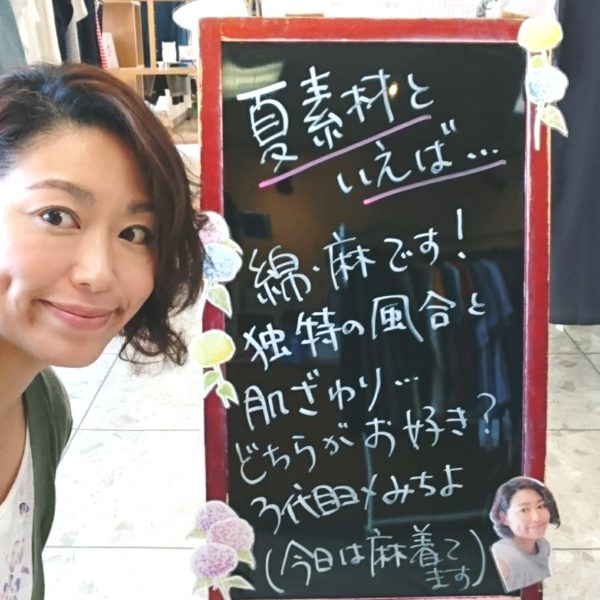 夏素材と
いえば…
綿・麻です！
独特の風合と
肌ざわり…
どちらがお好き？
3代目ヨメみちよ
(今日は麻着て
ます)